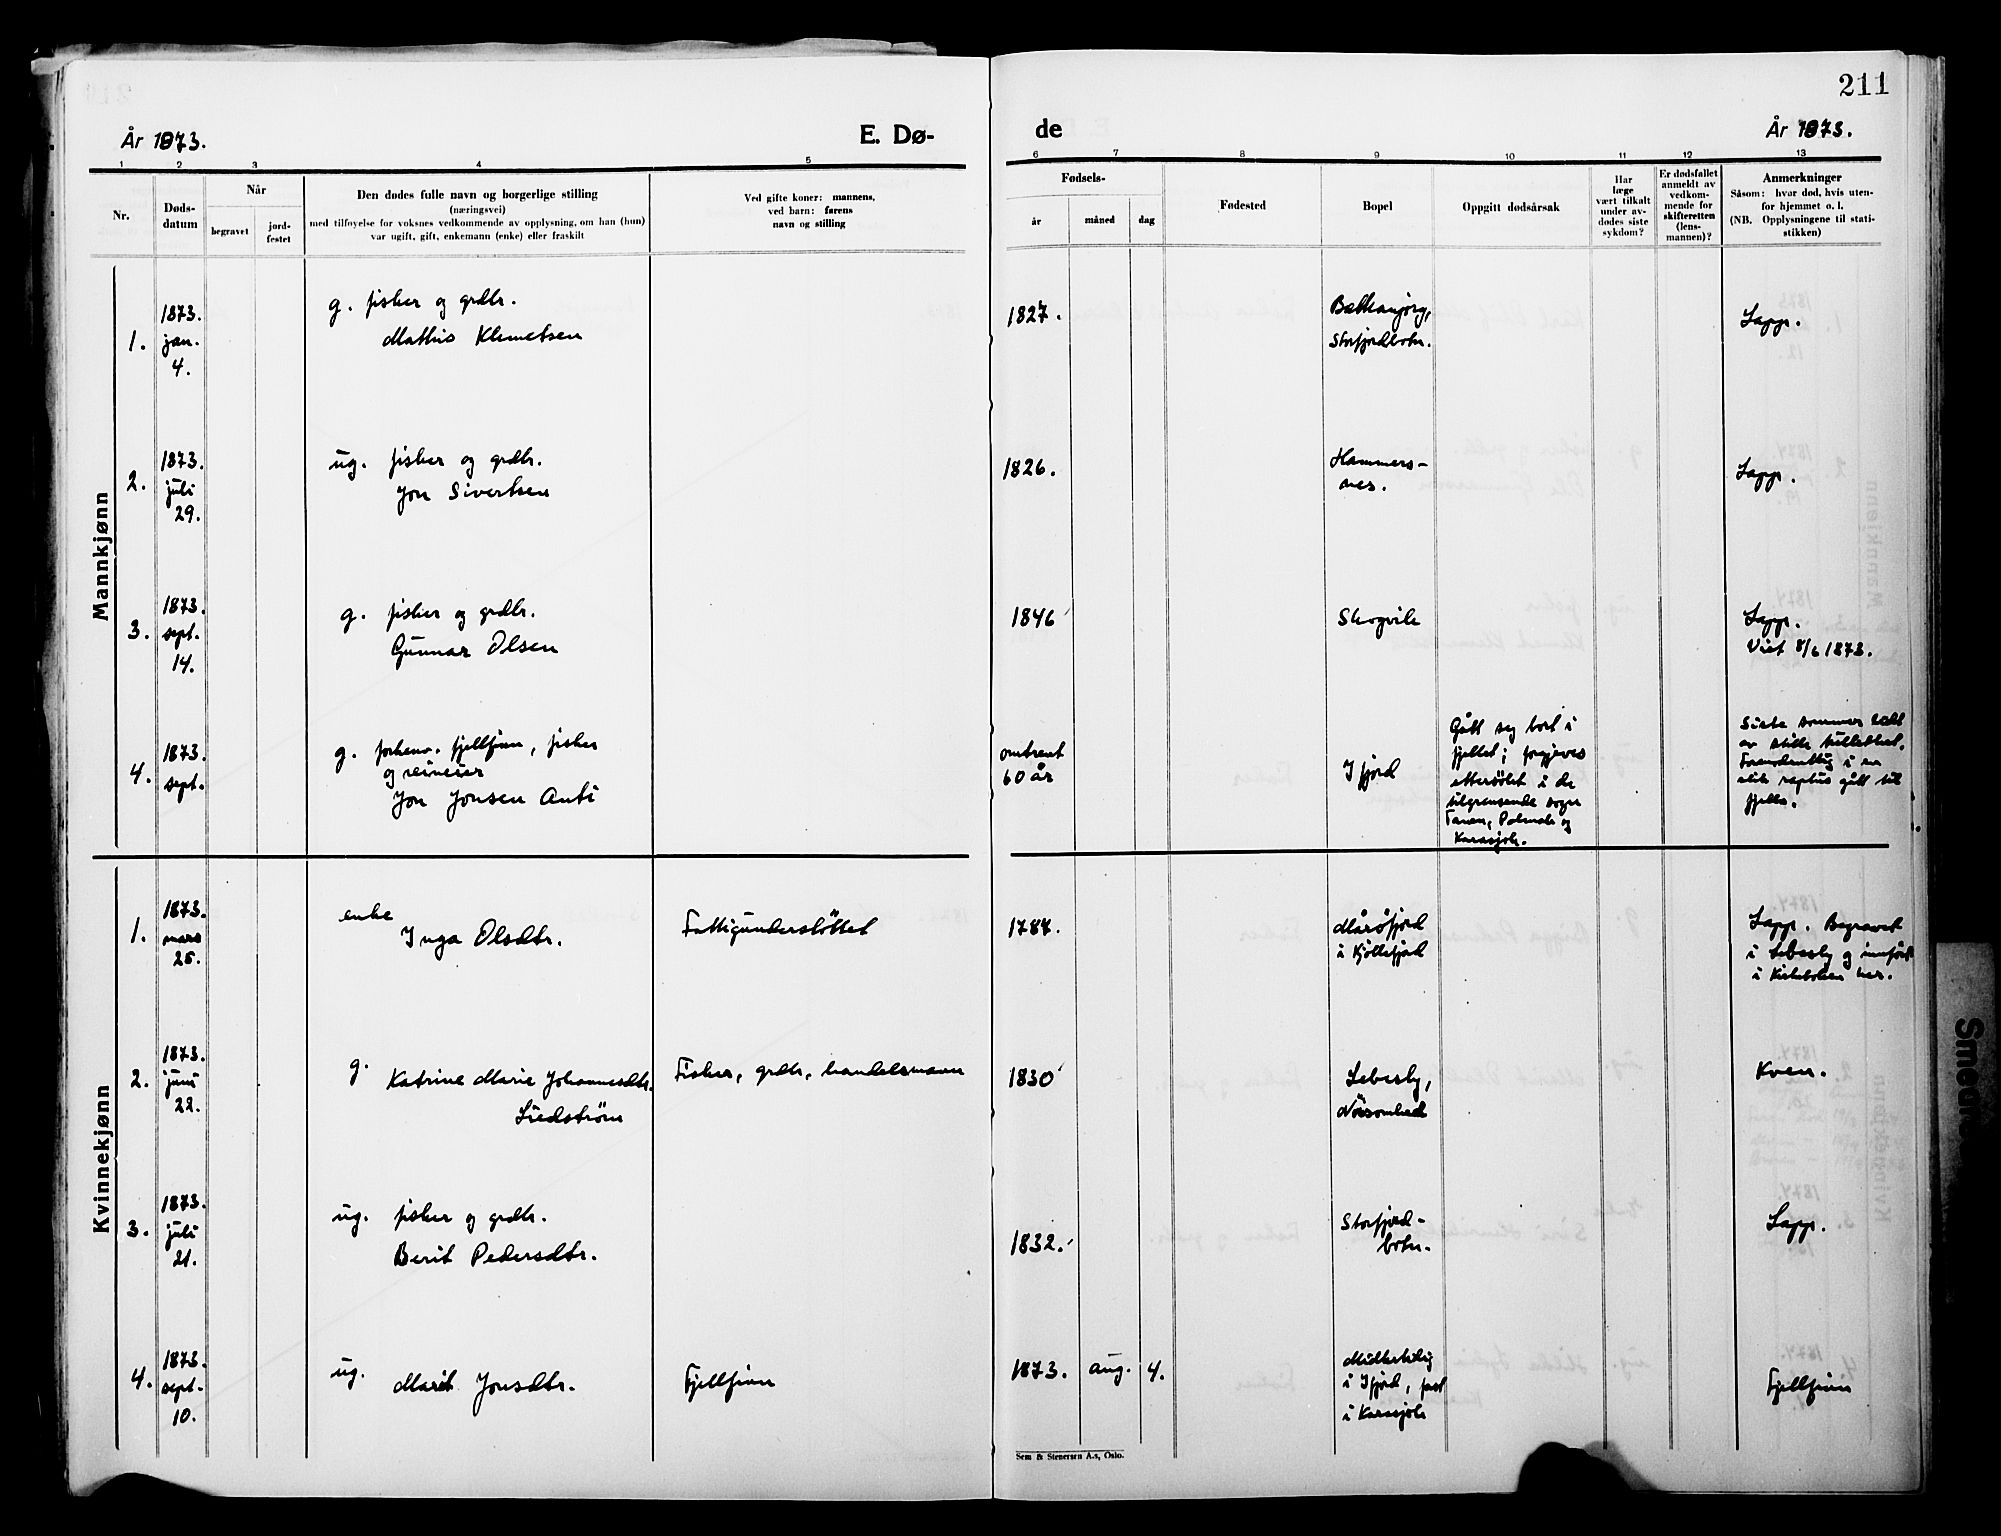 211
År 1873.
E. Dø-
de
År 1873.
1 2 3 4 5
6 7 8 9 10 11 12 13
Nr.
Døds-
datum
Når
begravet
jord-
festet
Den dødes fulle navn og borgerlige stilling
(næringsvei)
med tilføyelse for voksnes vedkommende av opplysning, om han (hun)
var ugift, gift, enkemann (enke) eller fraskilt
Ved gifte koner: mannens,
ved barn: farens
navn og stilling
Fødsels-
år
måned
dag
Fødested
Bopel
Oppgitt dødsårsak
Har
læge
vært tilkalt
under av-
dødes siste
sykdom?
Er dødsfallet
anmeldt av
vedkom-
mende for
skifteretten
(lens-
mannen)?
Anmerkninger
Såsom: hvar død, hvis uten-
for hjemmet o. l.
(NB. Opplysningene til stati-
stikken)
Mannkjønn
1.
1873.
jan.
4.
g. fisker og grdbr.
Mathis Klemetsen
1827.
Storfjordbotn.
Lapp.
2.
1873.
juli
29.
ug. fisker og grdbr.
Jon Sivertsen
1826.
Hammers-
nes.
Lapp.
3.
1873.
sept.
14.
g. fisker og grdbr.
Gunnar Olsen
1846
Skogvik
Lapp.
Viet 8/6 1873.
4.
1873.
sept.
g. forhenv. fjellfinn, fisker
og reineier
Jon Jonsen Anti
omtrent
60 år
Ifjord
Gått seg bort i
fjellet; forgjeves
ettersökt i de
tilgrensende sogn
Tanen, Polmak og
Karasjok.
Siste sommer
av stille
Formodentlig i en
slik raptus gått til
fjells.
Kvinnekjønn
1.
1873.
mars
25.
enke
Inga Olsdtr.
Fattigunderstöttet
1787.
Mårøfjord
i Kjöllefjord
Lapp. Begravet
i Lebesby og innfört
i Kirkeboken her.
2.
1873.
juni
22.
g.
Katrine Marie Johannesdtr.
Liedström
Fisker, grdbr, handelsmann
1830
Lebesby,
Kven.
3.
1873.
juli
21.
ug. fisker og grdbr.
Berit Pedersdtr.
1832.
Storfjord-
botn.
Lapp.
4.
1873.
sept.
10.
ug.
Marit Jonsdtr.
Fjellfinn
1873. aug. 4.
i Ifjord, fast
i Karasjok
Fjellfinn
Sem & Stenersen A.s, Oslo.